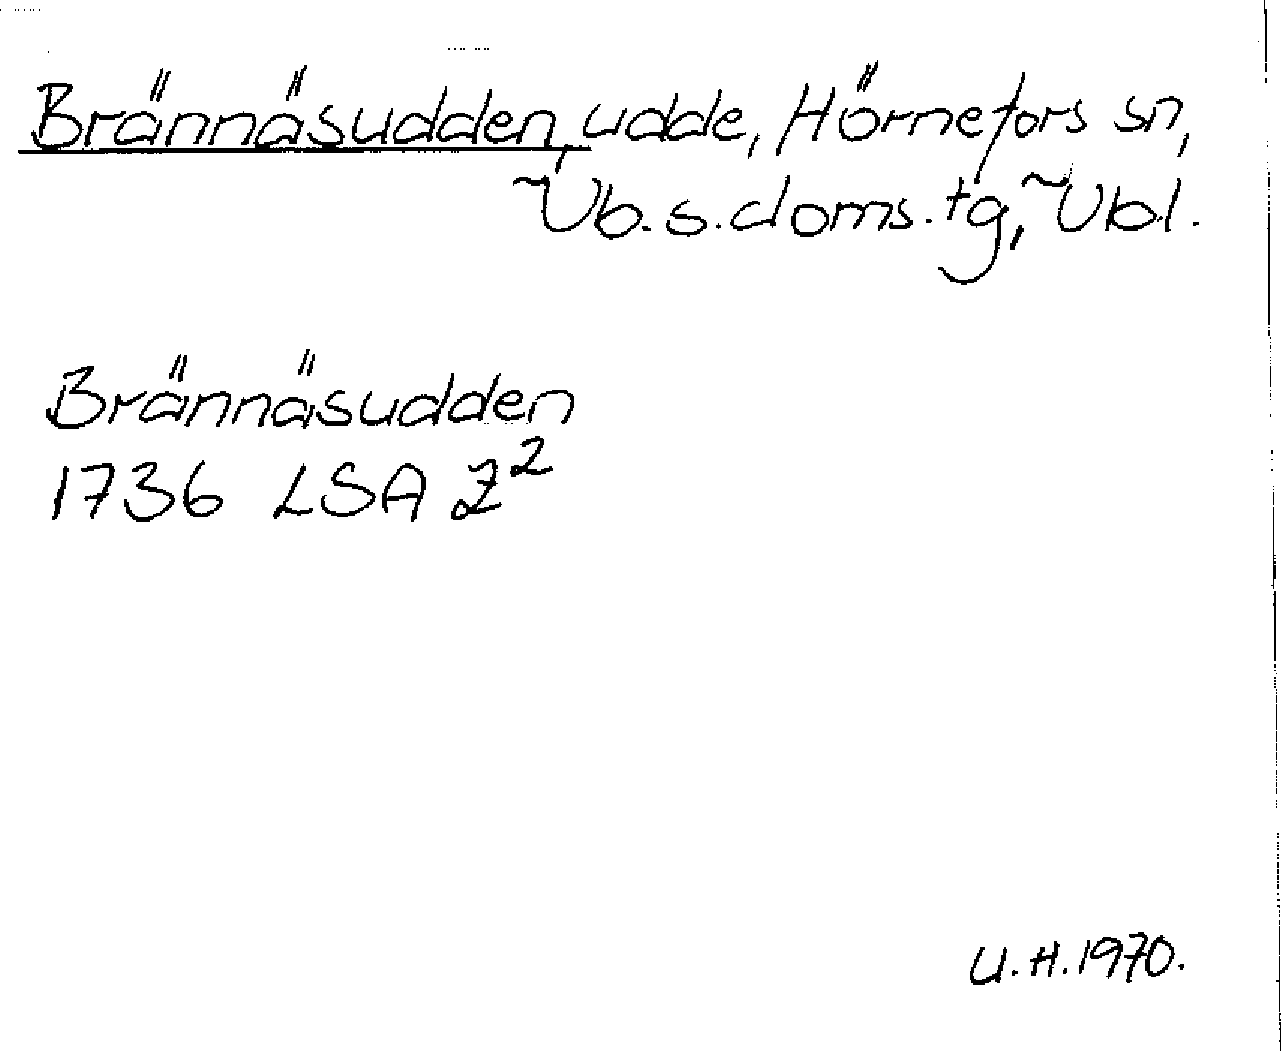 Brännäsudden, udde, Hörnefors sn,
Vb. s. doms. tg, Vbl.
Brännäsudden
1736 LSA Z²
U.H. 1970.